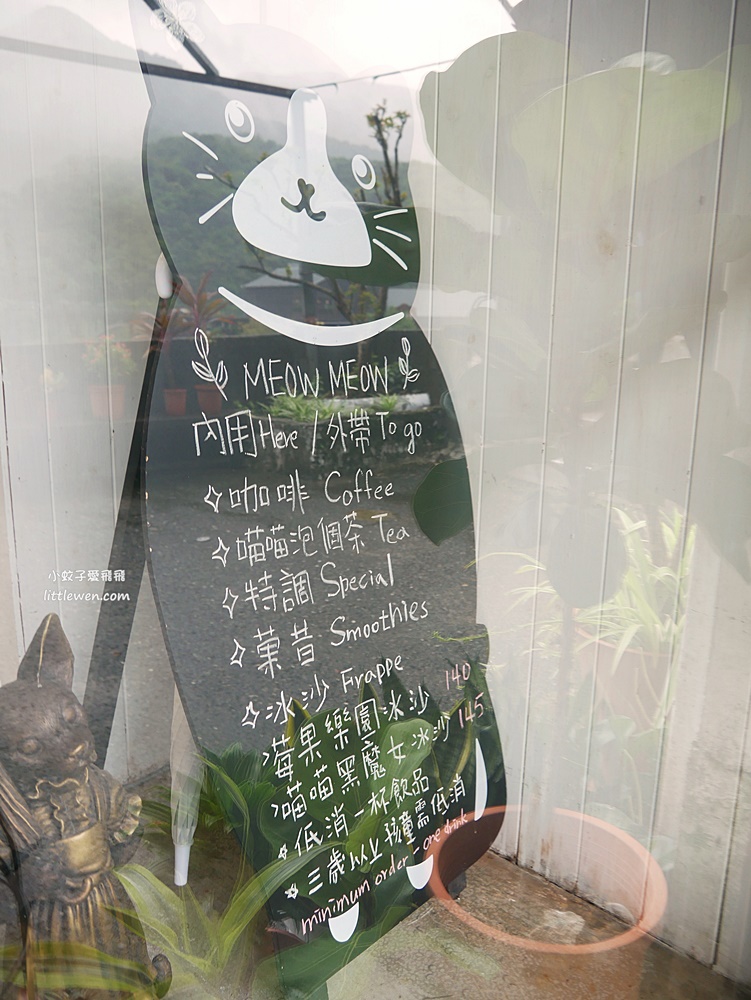 MEOW MEOW
內用 Here / 外帶 To go
咖啡 Coffee
喵喵泡個茶 Tea
特調 Special
菓昔 Smoothies
冰沙 Frappe
莓果樂園冰沙 140
喵喵黑魔女冰沙 145
低消一杯飲品
三歲以上孩童需低消
minimum order - one drink
小蚊子愛飛飛
littlewen.com